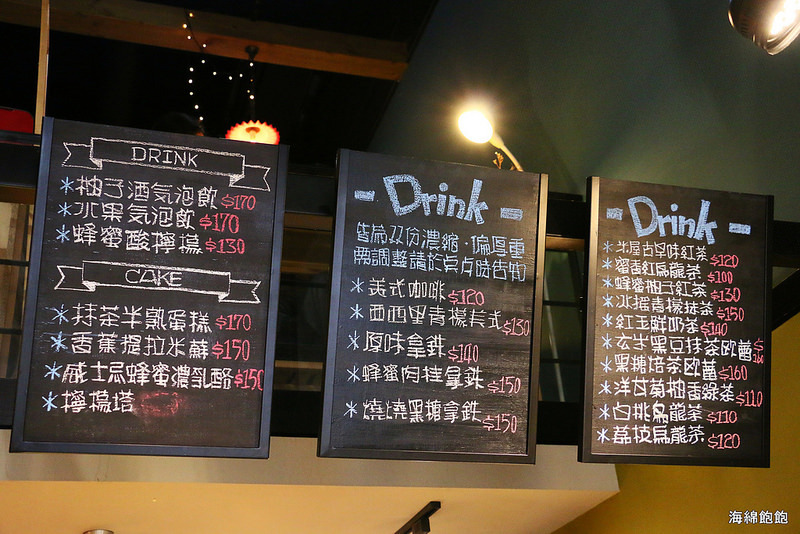 DRINK
*柚子酒気泡飲 $170
*水果気泡飲 $170
*蜂蜜酸檸檬 $130
CAKE
*抹茶半熟蛋糕 $170
*香蕉提拉米蘇 $150
*威士忌蜂蜜濃乳酪 $150
*檸檬塔
- Drink -
皆為双份濃縮．偏厚重
需調整請於点
*美式咖啡 $120
*西西里青檬美式 $130
*原味拿鉄 $140
*蜂蜜肉桂拿鉄 $150
*燒燒黑糖拿鉄 $150
- Drink -
*米屋古早味紅茶 $120
*蜜香紅烏龍茶 $100
*蜂蜜柚子紅茶 $130
*氷搖青檬抹茶 $150
*紅玉鮮奶茶 $140
*玄米黑豆抹茶欧蕾
*黑糖焙茶欧蕾 $160
*洋甘菊柚香綠茶 $110
*白桃烏龍茶 $110
*荔枝烏龍茶 $120
海綿飽飽